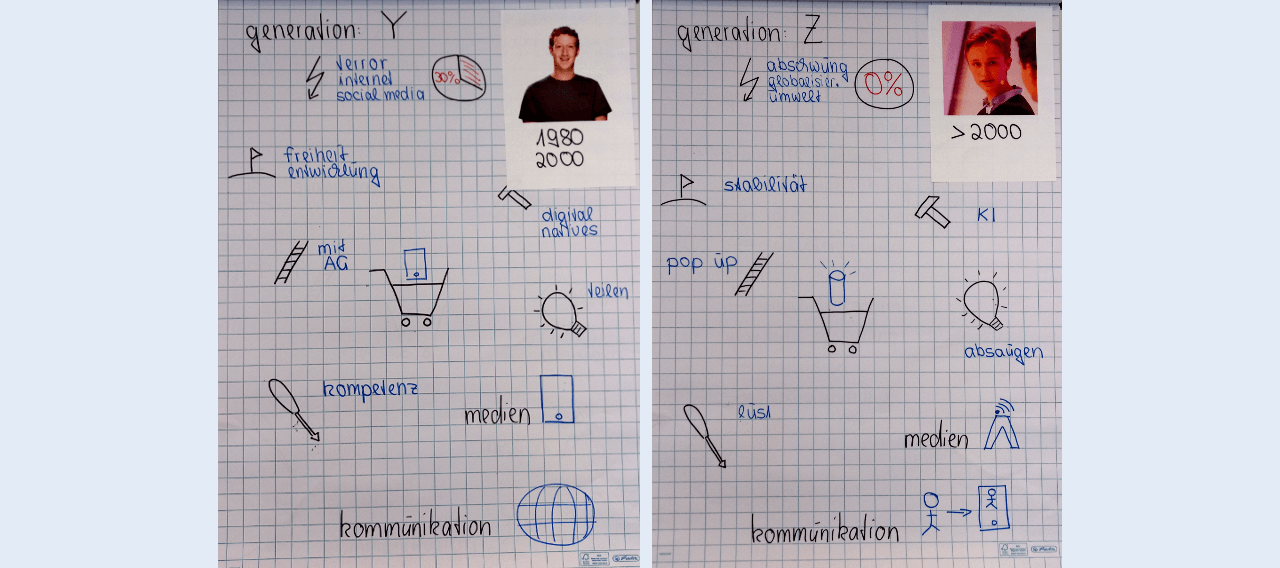 generation: Y
terror
internet
social media
30%
1980
2000
freiheit
entwicklung
digital
natives
mit
AG
teilen
kompetenz
medien
kommunikation
generation: Z
abschwung
globalisier.
umwelt
0%
>2000
stabilität
KI
pop up
absaugen
lust
medien
kommunikation